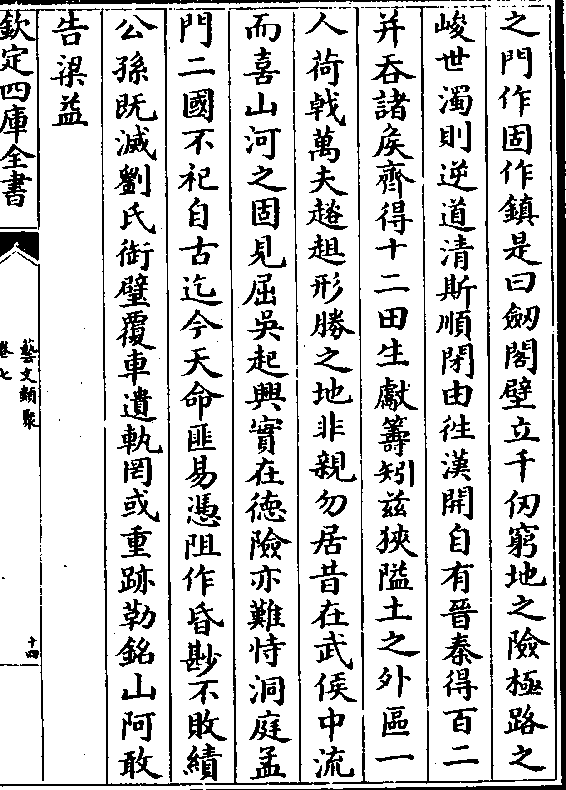 之門作固作鎮是曰劒閣壁立千仞窮地之險極路之
峻世濁則逆道清斯順閉由往漢開自有晉秦得百二
并吞諸侯齊得十二田生獻籌矧兹狹隘土之外區一
人荷戟萬夫趑趄形勝之地非親勿居昔在武侯中流
而喜山河之固見屈吳起興實在德險亦難恃洞庭孟
門二國不祀自古迄今天命匪易憑阻作昏尠不敗績
公孫既滅劉氏銜璧覆車遺軌罔或重跡勒銘山阿敢
告梁益
欽定四庫全書
藝文類聚
卷七
十四